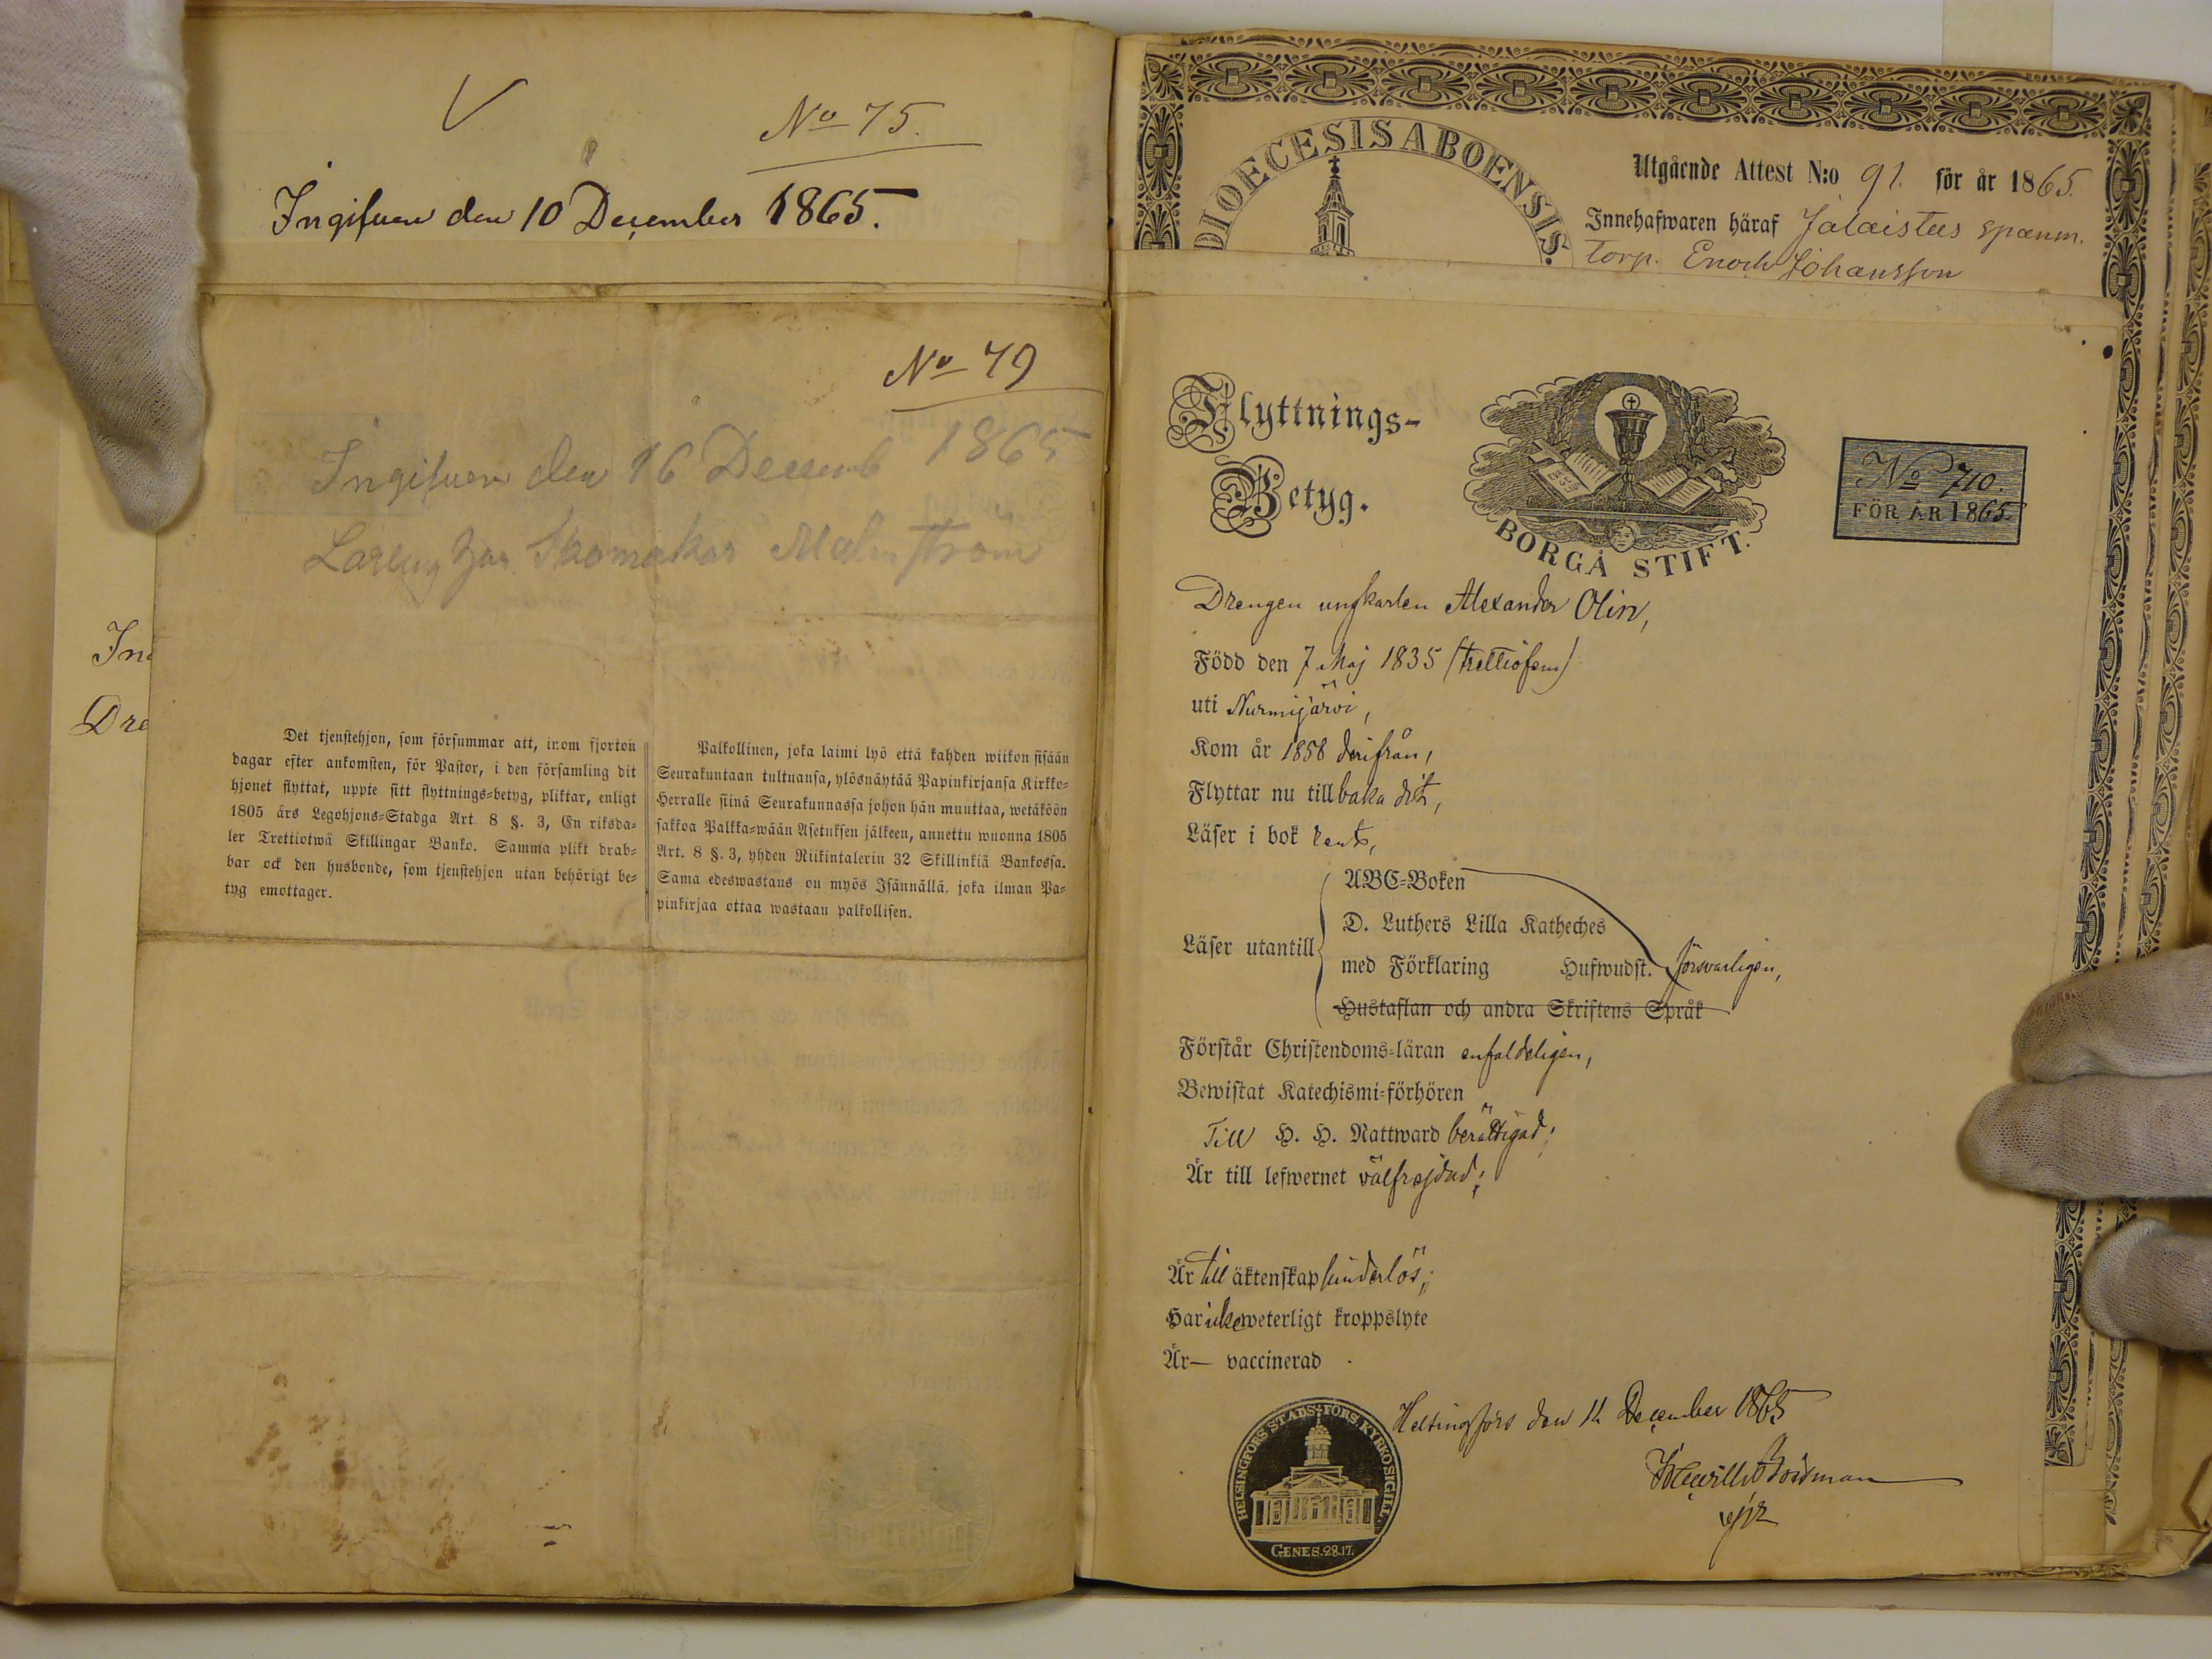 V
No 75.
Ingifven den 10 December 1865.
No 79
Ingifven den 16 Decemb 1865
Skomakar Malmström
In
Dre
Det tjenstehjon, som försummar att, inom fjorton
dagar efter ankomsten, för Pastor, i den församling dit
hjonet flyttat, uppte sitt flyttnings=betyg, pliktar, enligt
1805 års Legohjons=Stadga Art 8 §. 3, En riksda=
ler Trettiotwå Skillingar Banko. Samma plikt drab=
bar ock den husbonde, som tjenstehjon utan behörigt be=
tyg emottager.
Palkollinen, joka laimi lyö että kahden wiikon sisään
Seurakuntaan tultuansa, ylösnäytää Papinkirjansa Kirkko=
Herralle siinä Seurakunnassa johon hän muuttaa, wetäköön
sakkoa Palkka=wään Asetuksen jälkeen, annettu wuonna 1805
Art. 8 §. 3, yhden Riikintalerin 32 Skillinkiä Bankossa.
Sama edeswastaus on myös Isännällä, joka ilman Pa=
pinkirjaa ottaa wastaan palkollisen.
DIOECESIS ABOENSIS.
Utgående Attest N:o 91. för år 1865.
Innehafwaren häraf Jalaistus spanm.
torp. Enoch Johansson
Flyttnings-
Betyg.
BORGÅ STIFT.
No 710.
FÖR ÅR 1865
Drengen ungkarlen Alexander Olin,
Född den 7 Maj 1835 (trettiofem)
uti Nurmijärvi,
Kom år 1858 derifrån,
Flyttar nu tillbaka dit,
Läser i bok rent,
ABC=Boken
D. Luthers Lilla Katheches
Läser utantill
med Förklaring Hufwudst. försvarligen,
Hustaflan och andra Skriftens Språk
Förstår Christendoms=läran enfaldeligen,
Bewistat Katechismi=förhören
Till H. H. Nattward berättigad;
Är till lefwernet välfrejdad;
Är till äktenskap hinderlös;
Har icke weterligt kroppslyte
Är— vaccinerad .
Helsingfors den 12 December 1865
HELSINGFORS STADS FÖRS KYRKOSIGILL.
GENES.28.17.